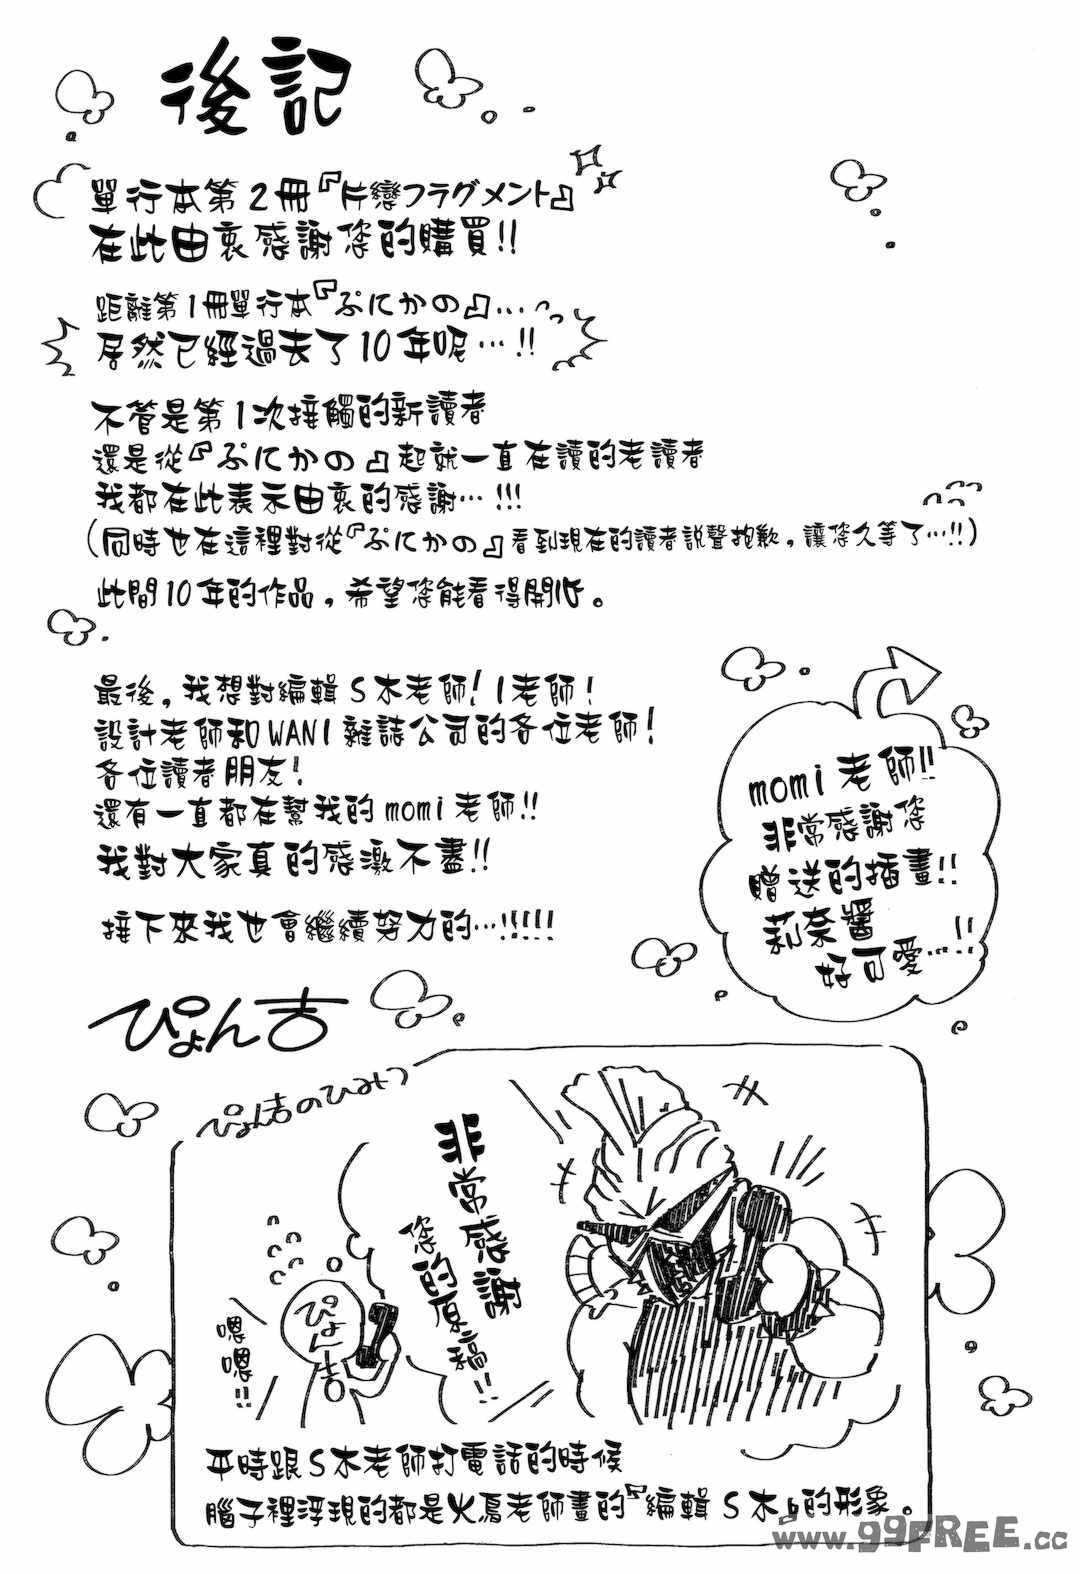 後記
單行本第2冊『片戀フラグメント』
在此由衷感謝您的購買!!
距離第1冊單行本『ぷにかの』…
居然已經過去了10年呢…!!
不管是第1次接觸的新讀者
還是從『ぷにかの』起就一直在讀的老讀者
我都在此表示由衷的感謝…!!!
(同時也在這裡對從『ぷにかの』看到現在的讀者說聲抱歉，讓您久等了…!!)
此間10年的作品，希望您能看得開心。
最後，我想對編輯S木老師!I老師!
設計老師和WANI雜誌公司的各位老師!
各位讀者朋友!
還有一直都在幫我的momi老師!!
我對大家真的感激不盡!!
接下來我也會繼續努力的…!!!!!
ぴょん吉
momi老師!!
非常感謝您
贈送的插畫!!
莉奈醬
好可愛…!!
ぴょん吉のひみつ
非常感謝
您的原稿!!
ぴょん吉
嗯嗯!!
平時跟S木老師打電話的時候
腦子裡浮現的都是火鳥老師畫的『編輯S木』的形象。
www.99FREE.cc